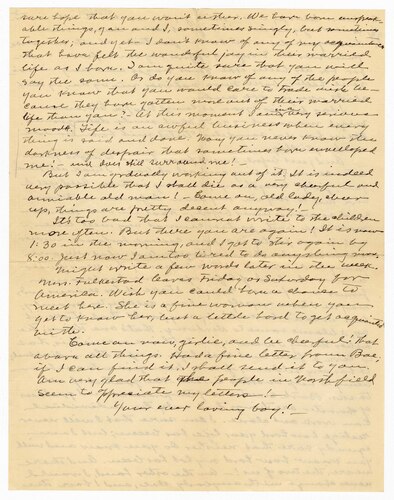 sure hope that you won't either. We have born unspeak-
able things, you and I, sometimes singly, but sometimes
together, and yet I don't know of any of my acquaintances
that have felt the wonderful joy in their married
life as I have. I am quite sure that you will
say the same. Or do you know of any of the people
you know that you would care to trade with be-
cause they have gotten more out of their married
life than you? At this moment I am in very serious
mood. Life is an awful business when every
thing is said and done. May you never know the
darkness of despair that sometimes have enveloped
me! and does still surround me!
But I am gradually working out of it. It is indeed
very possible that I shall die as a very cheerful and
amicable old man! Come on, old lady, cheer
up, things are pretty decent anyway!
It's too bad that I cannot write to the children
more often. But there you are again! It is now
1:30 in the morning, and I got to stir again by
8:00. Just now I am too tired to do anything more.
Might write a few words later in the week.
Mrs. Fulkerted leaves Friday or Saturday for
America. Wish you could have a chance to
meet her. She is a fine woman when you
get to know her, but a little hard to get acquainted
with.
Come on now, girlie, and be cheerful that
above all things. Had a fine letter from Bae,
if I can find it, I shall send it to you.
Am very glad that the people in Northfield
seem to appreciate my letters!
Your ever loving boy!